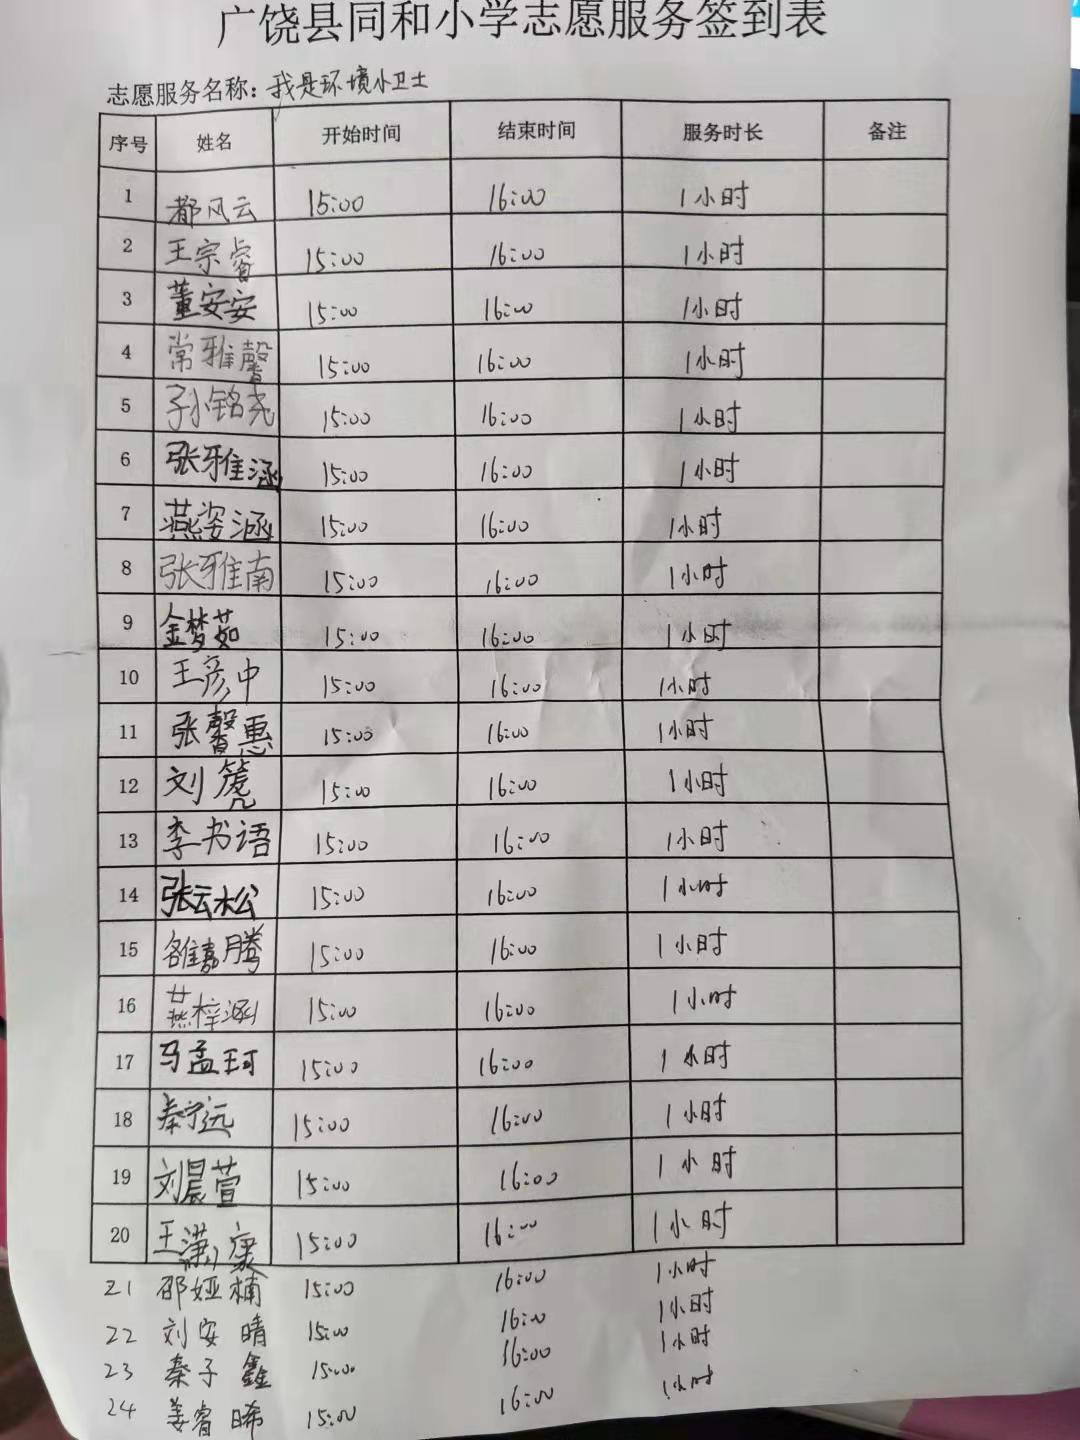 广饶县同和小学志愿服务签到表
志愿服务名称：我是环境小卫士
序号 姓名 开始时间 结束时间 服务时长 备注
1 都风云 15:00 16:00 1小时
2 王宗睿 15:00 16:00 1小时
3 董安安 15:00 16:00 1小时
4 常雅馨 15:00 16:00 1小时
5 孙铭尧 15:00 16:00 1小时
6 张雅涵 15:00 16:00 1小时
7 燕姿涵 15:00 16:00 1小时
8 张雅南 15:00 16:00 1小时
9 金梦茹 15:00 16:00 1小时
10 王彦中 15:00 16:00 1小时
11 张馨惠 15:00 16:00 1小时
12 刘 15:00 16:00 1小时
13 李书语 15:00 16:00 1小时
14 张云松 15:00 16:00 1小时
15 雒嘉腾 15:00 16:00 1小时
16 燕梓涵 15:00 16:00 1小时
17 马孟珂 15:00 16:00 1小时
18 秦宁远 15:00 16:00 1小时
19 刘晨萱 15:00 16:00 1小时
20 王潇康 15:00 16:00 1小时
21 邵娅楠 15:00 16:00 1小时
22 刘安晴 15:00 16:00 1小时
23 秦子鑫 15:00 16:00 1小时
24 姜睿晞 15:00 16:00 1小时